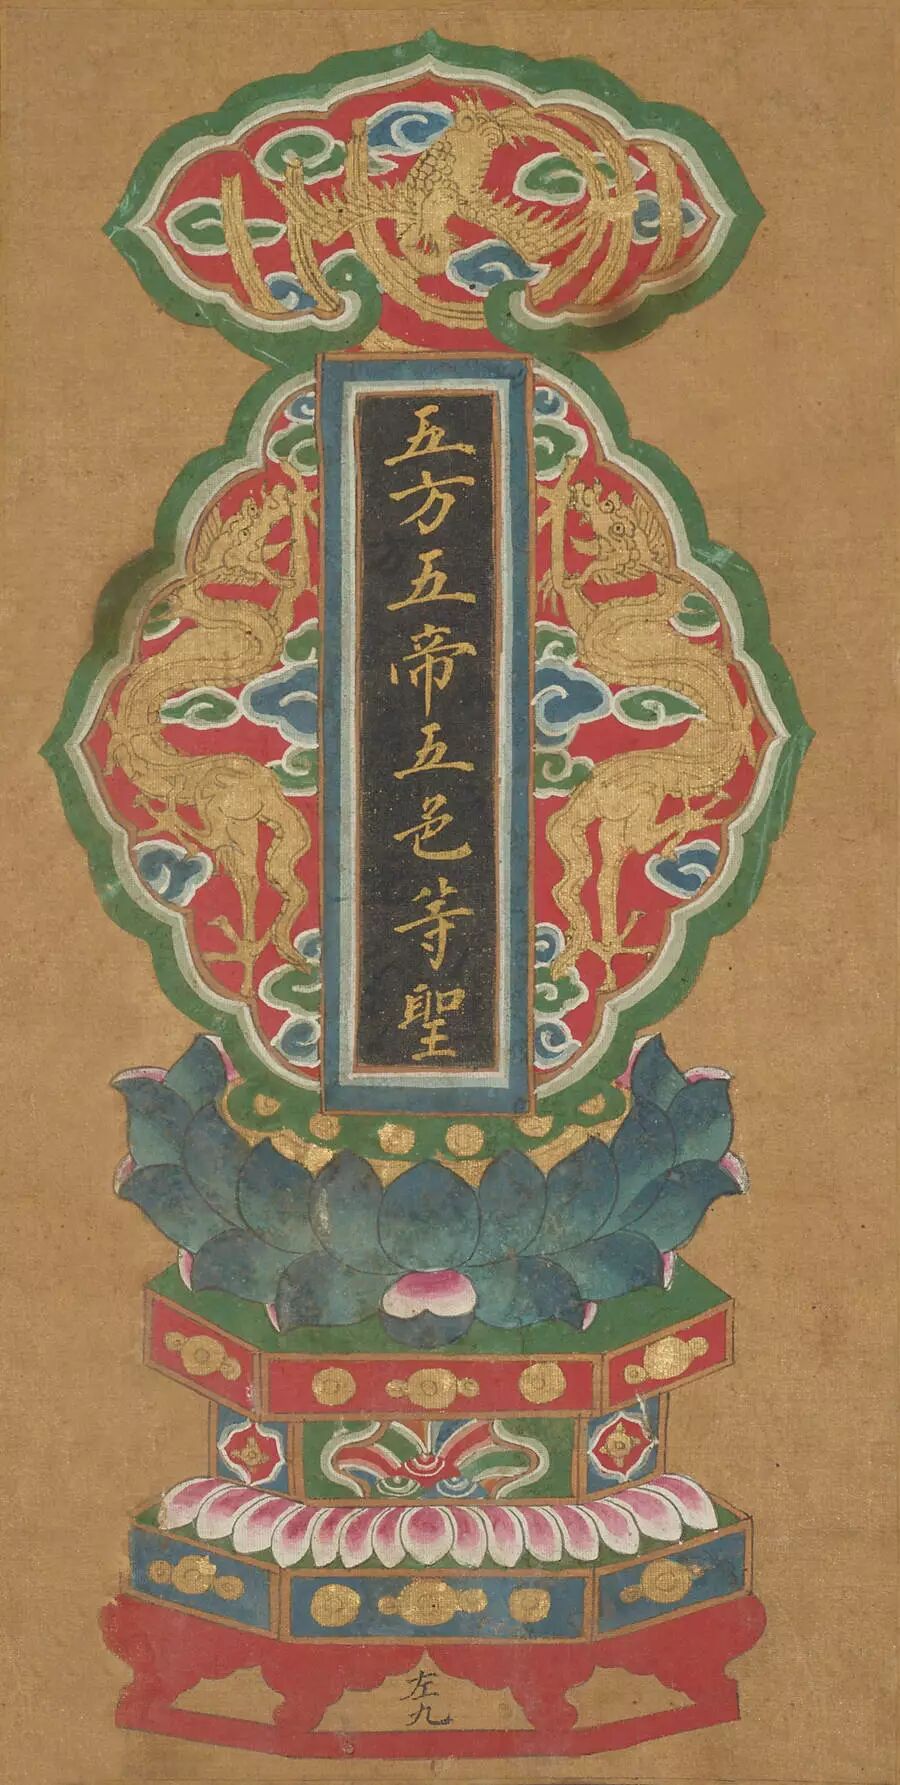 五方五帝五邑等聖
左九